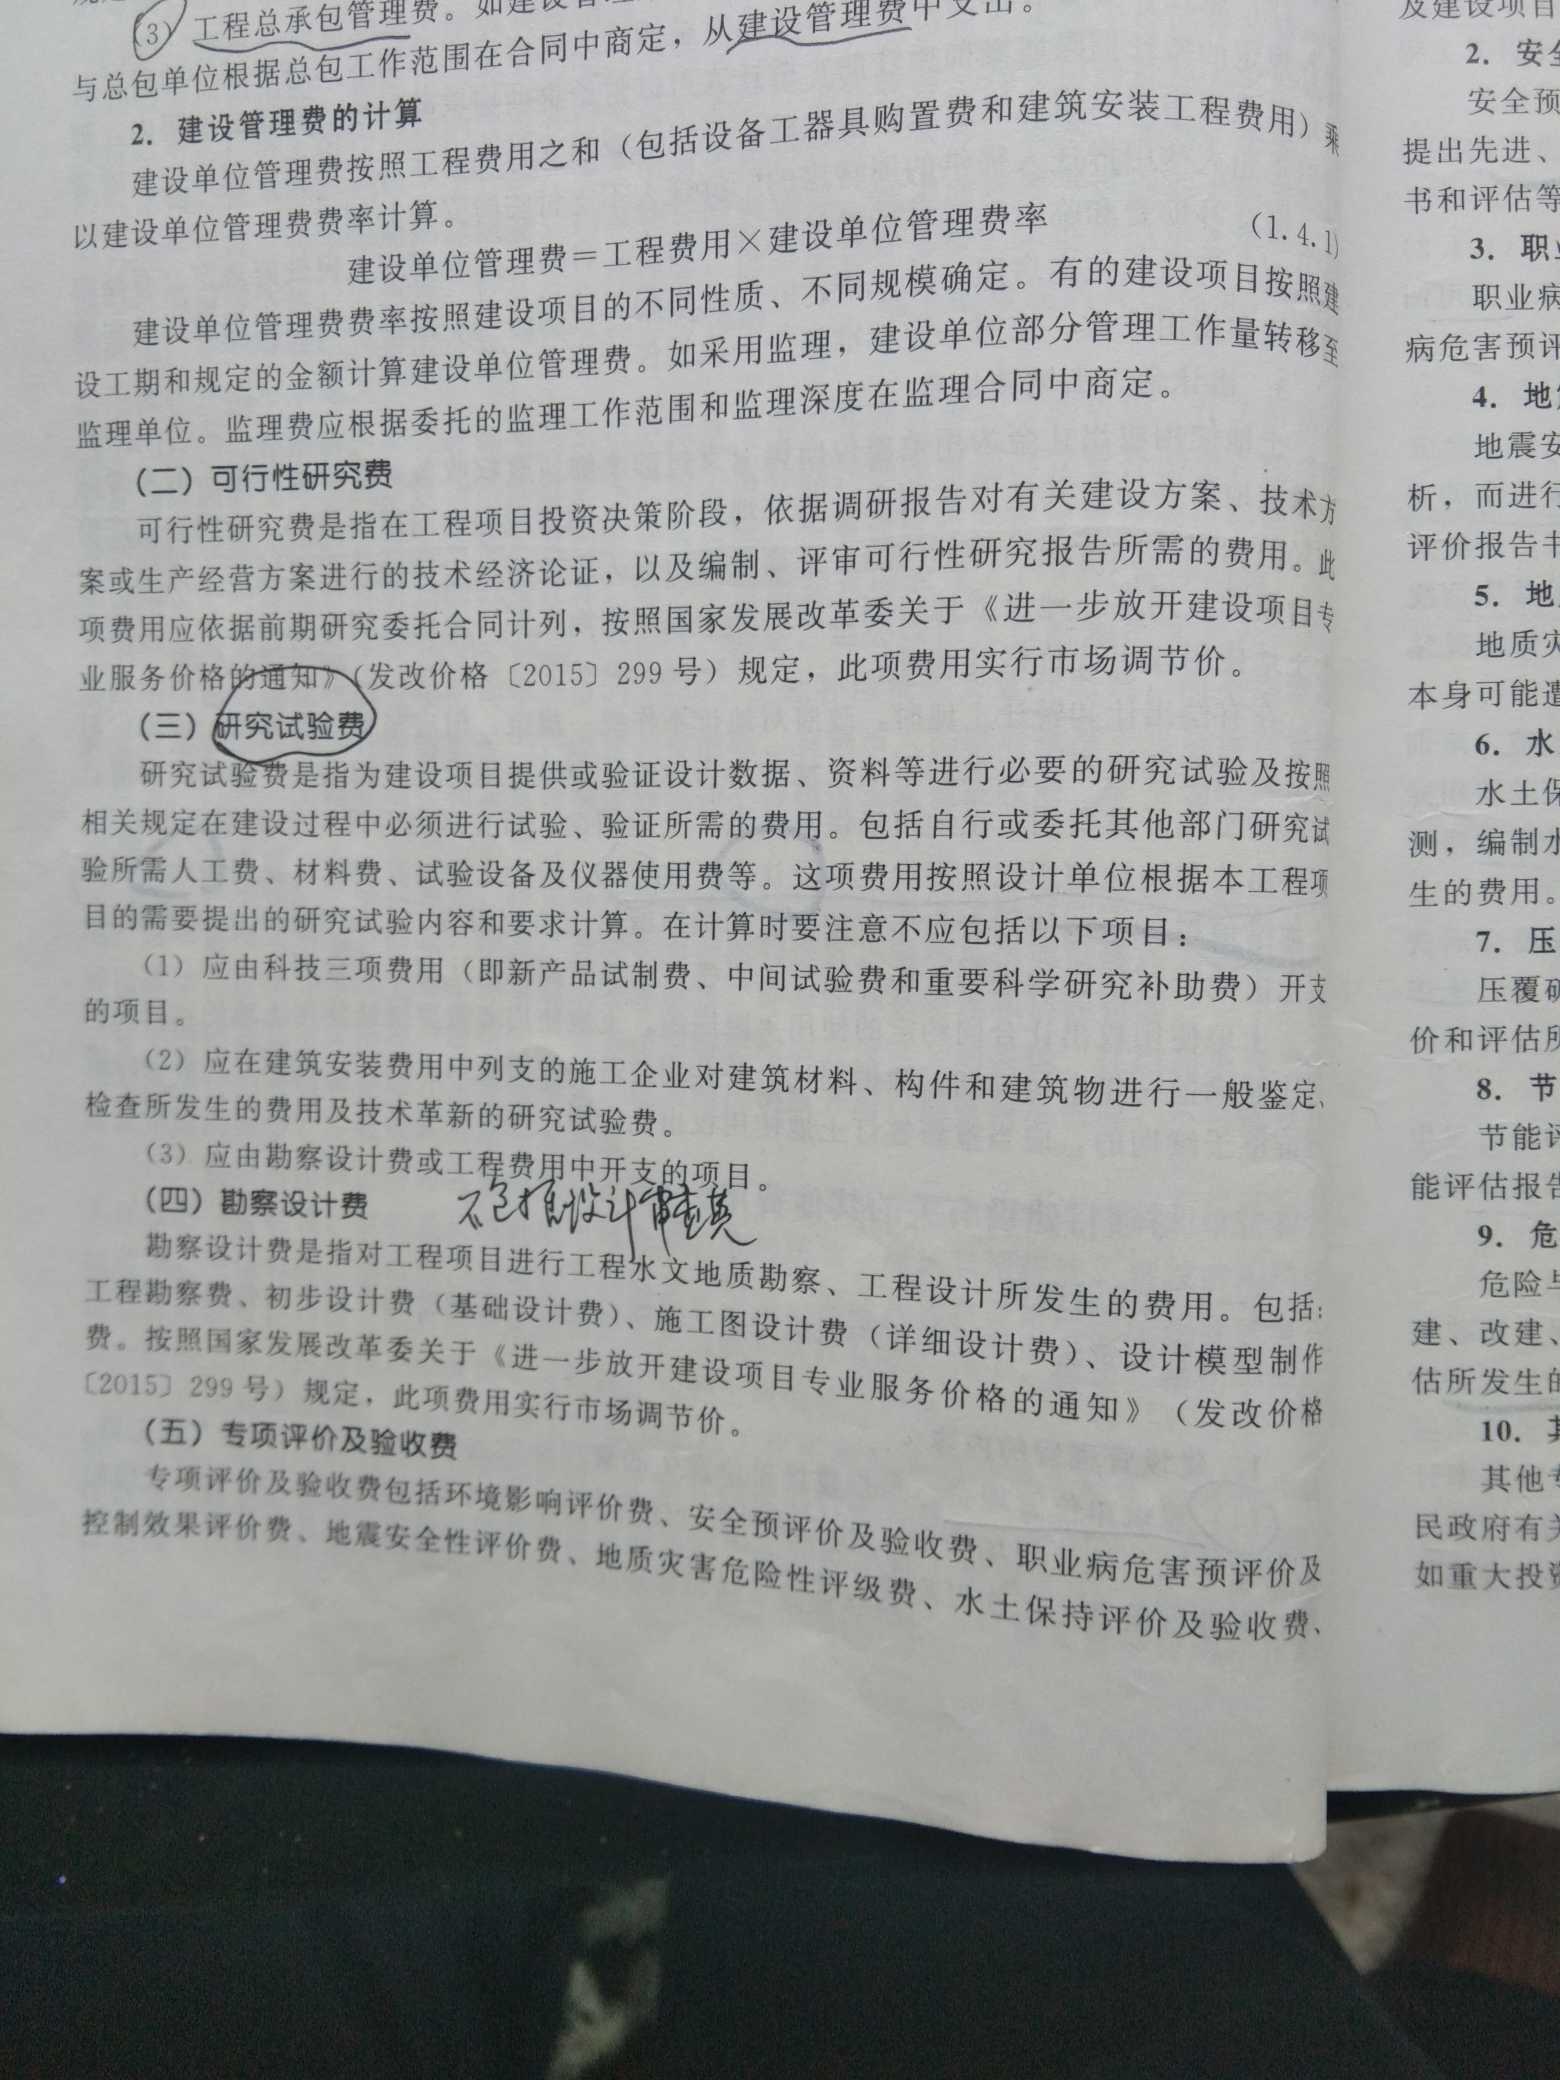 (3) 工程总承包管理费。如建设管
与总包单位根据总包工作范围在合同中商定，从建设管理费中支出。
2. 建设管理费的计算
建设单位管理费按照工程费用之和（包括设备工器具购置费和建筑安装工程费用）乘
以建设单位管理费费率计算。
建设单位管理费＝工程费用×建设单位管理费率 (1.4.1)
建设单位管理费费率按照建设项目的不同性质、不同规模确定。有的建设项目按照建
设工期和规定的金额计算建设单位管理费。如采用监理，建设单位部分管理工作量转移至
监理单位。监理费应根据委托的监理工作范围和监理深度在监理合同中商定。
（二）可行性研究费
可行性研究费是指在工程项目投资决策阶段，依据调研报告对有关建设方案、技术方
案或生产经营方案进行的技术经济论证，以及编制、评审可行性研究报告所需的费用。此
项费用应依据前期研究委托合同计列，按照国家发展改革委关于《进一步放开建设项目专
业服务价格的通知》（发改价格〔2015〕299 号）规定，此项费用实行市场调节价。
（三）研究试验费
研究试验费是指为建设项目提供或验证设计数据、资料等进行必要的研究试验及按照
相关规定在建设过程中必须进行试验、验证所需的费用。包括自行或委托其他部门研究试
验所需人工费、材料费、试验设备及仪器使用费等。这项费用按照设计单位根据本工程项
目的需要提出的研究试验内容和要求计算。在计算时要注意不应包括以下项目：
（1）应由科技三项费用（即新产品试制费、中间试验费和重要科学研究补助费）开支
的项目。
（2）应在建筑安装费用中列支的施工企业对建筑材料、构件和建筑物进行一般鉴定、
检查所发生的费用及技术革新的研究试验费。
（3）应由勘察设计费或工程费用中开支的项目。
（四）勘察设计费 不包括设计审查费
勘察设计费是指对工程项目进行工程水文地质勘察、工程设计所发生的费用。包括：
工程勘察费、初步设计费（基础设计费）、施工图设计费（详细设计费）、设计模型制作
费。按照国家发展改革委关于《进一步放开建设项目专业服务价格的通知》（发改价格
〔2015〕299 号）规定，此项费用实行市场调节价。
（五）专项评价及验收费
专项评价及验收费包括环境影响评价费、安全预评价及验收费、职业病危害预评价及
控制效果评价费、地震安全性评价费、地质灾害危险性评级费、水土保持评价及验收费、
及建设项目
2. 安全
安全预
提出先进、
书和评估等
3. 职业
职业病
病危害预评
4. 地
地震安
析，而进行
评价报告书
5. 地
地质灾
本身可能遭
6. 水
水土保
测，编制水
生的费用。
7. 压
压覆矿
价和评估所
8. 节
节能评
能评估报告
9. 危
危险与
建、改建、
估所发生的
10. 其
其他专
民政府有关
如重大投资